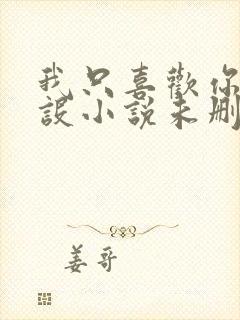 我只喜歡你
設小說未刪
姜哥